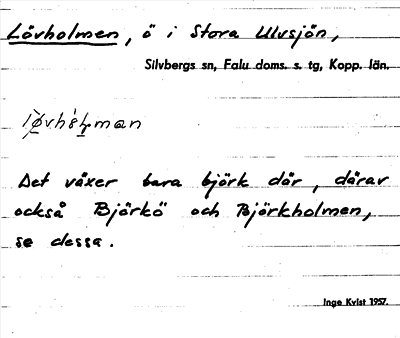 Lövholmen, ö i Stora Ulvsjön,
Silvbergs sn, Falu doms. s. tg, Kopp. län.
Det växer bara björk där, därav
också Björkö och Björkholmen,
se dessa.
Inge Kvist 1957.